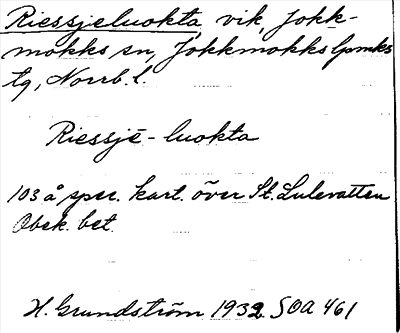 Riessjeluokta, vik, Jokk-
mokks sn, Jokkmokks lpmks
tg, Norrb. l.
Riessjē-luokta
103 å spec. kart. över St. Lulevatten
Obek. bet.
H. Grundström 1932 SOA 461